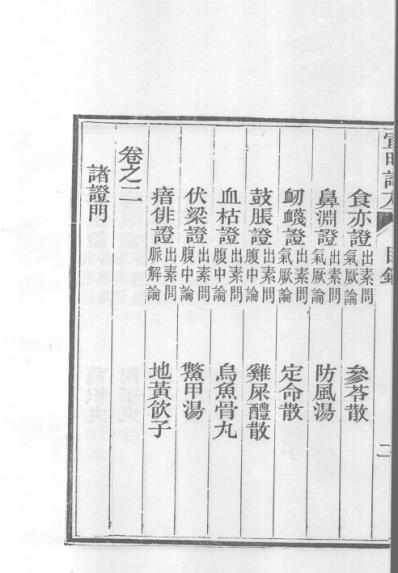 宣明論方 目錄 二
食亦證 出素問氣厥論 參苓散
鼻淵證 出素問氣厥論 防風湯
衂衊證 出素問氣厥論 定命散
鼓脹證 出素問腹中論 雞屎醴散
血枯證 出素問腹中論 烏魚骨丸
伏梁證 出素問腹中論 鱉甲湯
瘖俳證 出素問脈解論 地黃飮子
卷之二
諸證門